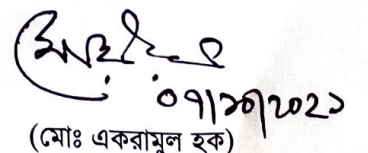 ০৭/১০/২০২১
(মোঃ একরামুল হক)